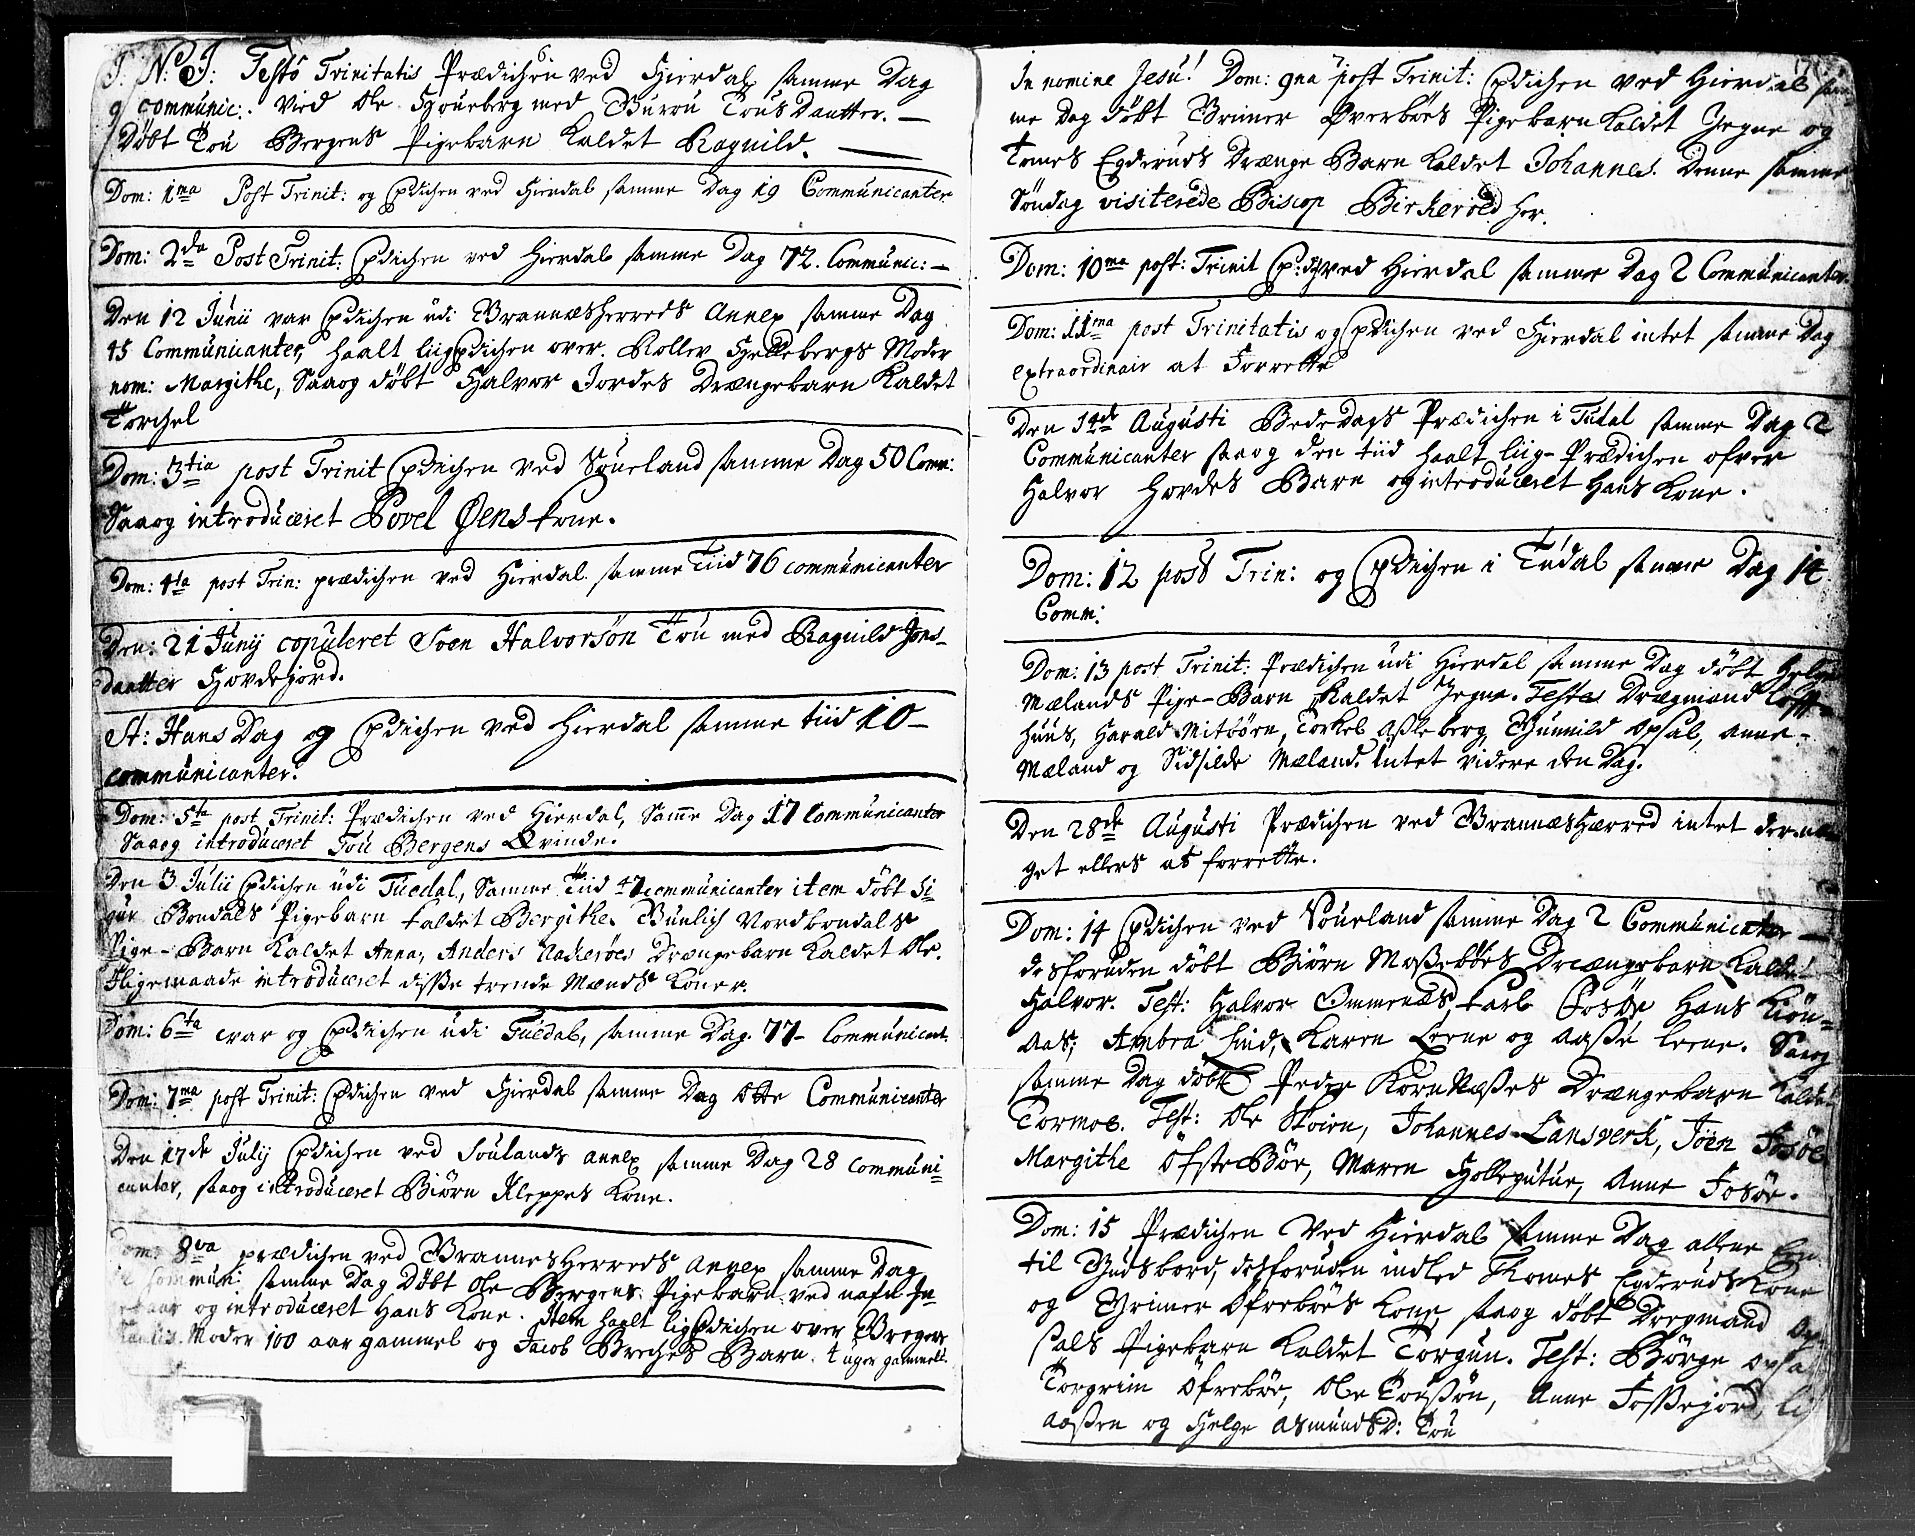 J: N: J: Festo Trinitatis Prædichen ved Hierdal samme Dag
9 communic: Vied Ole Houeberg med Burou Tous Daatter. —
Døbt Tou Bergens Pigebarn Kaldet Ragnild. —
Dom: 1ma Post Trinit: og Prdichen ved Hierdal samme Dag 19 Communicanter
Dom: 2da Post Trinit: Prdichen ved Hierdal samme Dag 72. Communic: —
Den 12 Junii var Prdichen udi Brannæsherreds Annex samme Dag
15 Communicanter, haalt liigPrdichen over Rollev Hellebergs Moder
nom: Margithe, Saaog døbt Halvor Jordes Drængebarn Kaldet
Torchel
Dom: 3tia post Trinit Prdichen ved Soueland samme Dag 50 Comm:
Saaog introduceret Povel Øens kone.
Dom: 4ta post Trin: prædichen ved Hierdal samme Tiid 76 communicanter
Den: 21 Junij copuleret Sven Halvorsøn Tou med Ragnild Jons-
daatter Hovdejord.
St: Hans Dag og Prdichen ved Hierdal samme tiid 10-
communicanter.
Dom: 5ta post Trinit: Prædichen ved Hierdal, Samme Dag 17 Communicanter
Saaog introduceret Tou Bergens Qvinde.
Den 3 Julii Prdichen udi Tuedal, Samme Tiid 47 communicanter item døbt Si-
gur Bondals Pigebarn kaldet Bergithe. Gunlich Nordbondals
Pige-Barn Kaldet Anna, Anders Nakerøes Drængebarn Kaldet Ole.
Sligemaade introduceret disse trende Mænds Koner.
Dom: 6ta var og Prdichen udi Tuedal, samme Dag. 77- Communicant.
Dom: 7ma post Trinit: Prdichen ved Hierdal samme Dag Otte Communicanter
Den 17de Julij Prdichen ved Soulands annex samme Dag 28 Communi-
canter, saaog introduceret Biørn Kleppes Kone.
Dom: 8va prædichen ved Brannesherreds Annex samme Dag
commun: samme Dag Døbt Ole Bergens Pigebarn ved nafn In-
og introduceret Hans Kone. Item haalt ligPrdichen over
Moder 100 aar gammel og Jacob Breches Barn. 4 uger gammelt.
In nomine Jesu! Dom: 9na post Trinit: Prdichen ved Hierdal sam-
me Dag døbt Grimer Øverbøes Pigebarn Kaldet Jegne og
Tomes Egderuds Drænge Barn Kaldet Johannes. Denne samme
Søndag visiterede Biscop Birkerod her.
Dom: 10ma post: Trinit Pr:ch ved Hierdal samme Dag 2 Communicanter.
Dom: 11ma post Trinitatis og Prdichen ved Hierdal intet samme Dag
extraordinair at Forrette
Den 14de Augusti Bededags Prædichen i Tudal samme Dag 2
Communicanter saaog den tiid haalt liig-Prædichen ofver
Halvor Hovdes Barn og introduceret Hans Kone.
Dom: 12 post Trin: og Prdichen i Tudal samme Dag 14
Comm:
Dom: 13 post Trinit: Prædichen udi Hierdal samme Dag døbt Helge
Mælands Pige-Barn Kaldet Jegne. Testes Drægmand Lofft-
huus, Harald Mitbøen, Torkel Asleberg, Gunnild Opsal, Anne-
Mæland og Sidsilde Mæland. Intet videre den Dag.
Den 28de Augusti Prædichen ved Brannæsherred intet der
get ellers at forrette.
Dom: 14 Prdichen ved Soueland samme Dag 2 Communicanter —
desforuden døbt Biørn Mossebøes Drængebarn Kaldet
Halvor. Test: Halvor Ommenæs, Karl Fosøe Hans Kiøn-
Aas, Ambra Lind, Karen Leene og Aasse Leene. Saaog
samme Dag døbt Peder KornNæsses Drængebarn Kaldet
Tormoe. Test: Ole Skoien, Johannes Lansverk, Joen Fosøe
Margithe ØfsteBøe, Maren Hollegutue, Anne Fosøe.
Dom: 15 Prædichen Ved Hierdal samme Dag allene En
til Gudsbord, desforuden indled Thomes Egderuds Kone
og Grimer Øfrebøes Kone, saaog døbt Dregmand Op-
sals Pigebarn Kaldet Torgun. Test: Børge Opsal
Torgrim Øfrebøe, Ole Toussøn, Anne Fossejord, Li
Aasen og Helge AsmundsD: Tou